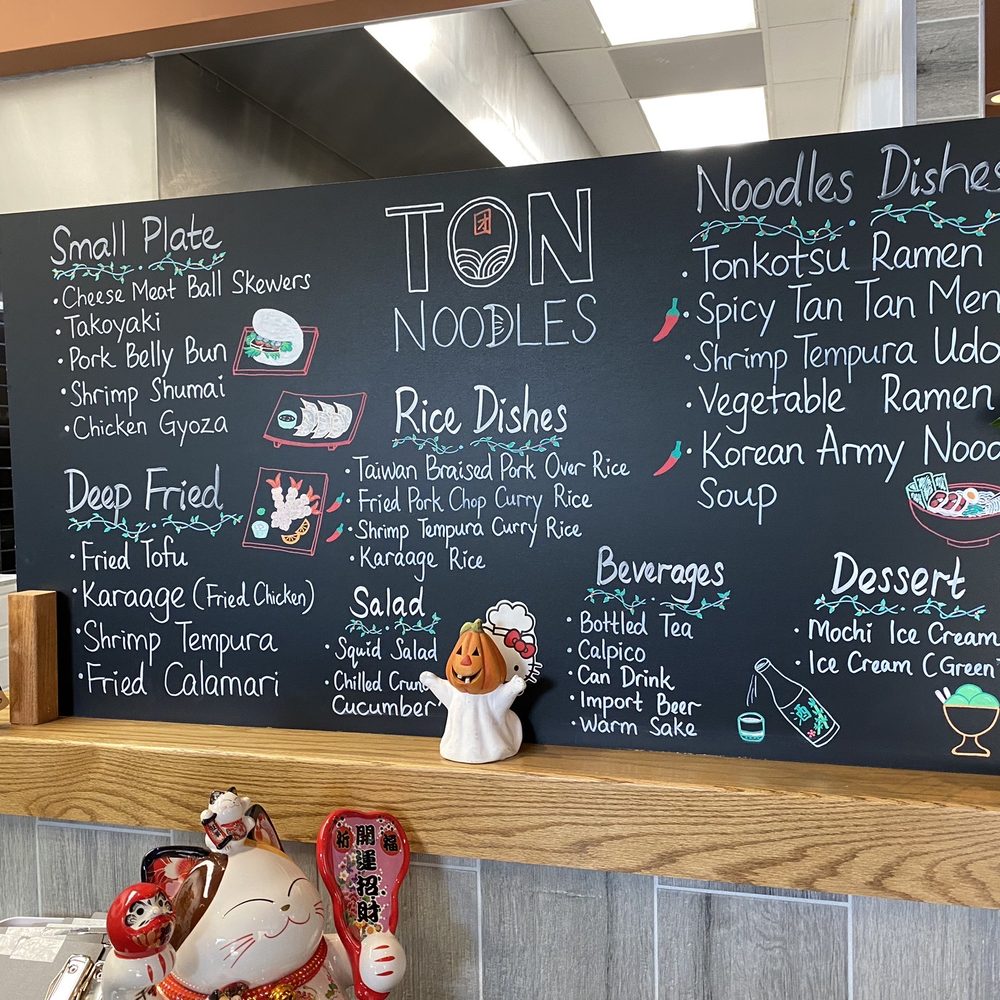 Small Plate
· Cheese Meat Ball Skewers
· Takoyaki
· Pork Belly Bun
· Shrimp Shumai
· Chicken Gyoza
Deep Fried
· Fried Tofu
· Karaage (Fried Chicken)
· Shrimp Tempura
· Fried Calamari
団
TON
NOODLES
Rice Dishes
· Taiwan Braised Pork Over Rice
· Fried Pork Chop Curry Rice
· Shrimp Tempura Curry Rice
· Karaage Rice
Salad
· Squid Salad
· Chilled Crunc
Cucumber
Noodles Dishes
· Tonkotsu Ramen
· Spicy Tan Tan Men
· Shrimp Tempura Udo
· Vegetable Ramen
· Korean Army Nood
Soup
Beverages
· Bottled Tea
· Calpico
· Can Drink
· Import Beer
· Warm Sake
酒
Dessert
· Mochi Ice Cream
· Ice Cream (Green
祈 福
開運招財